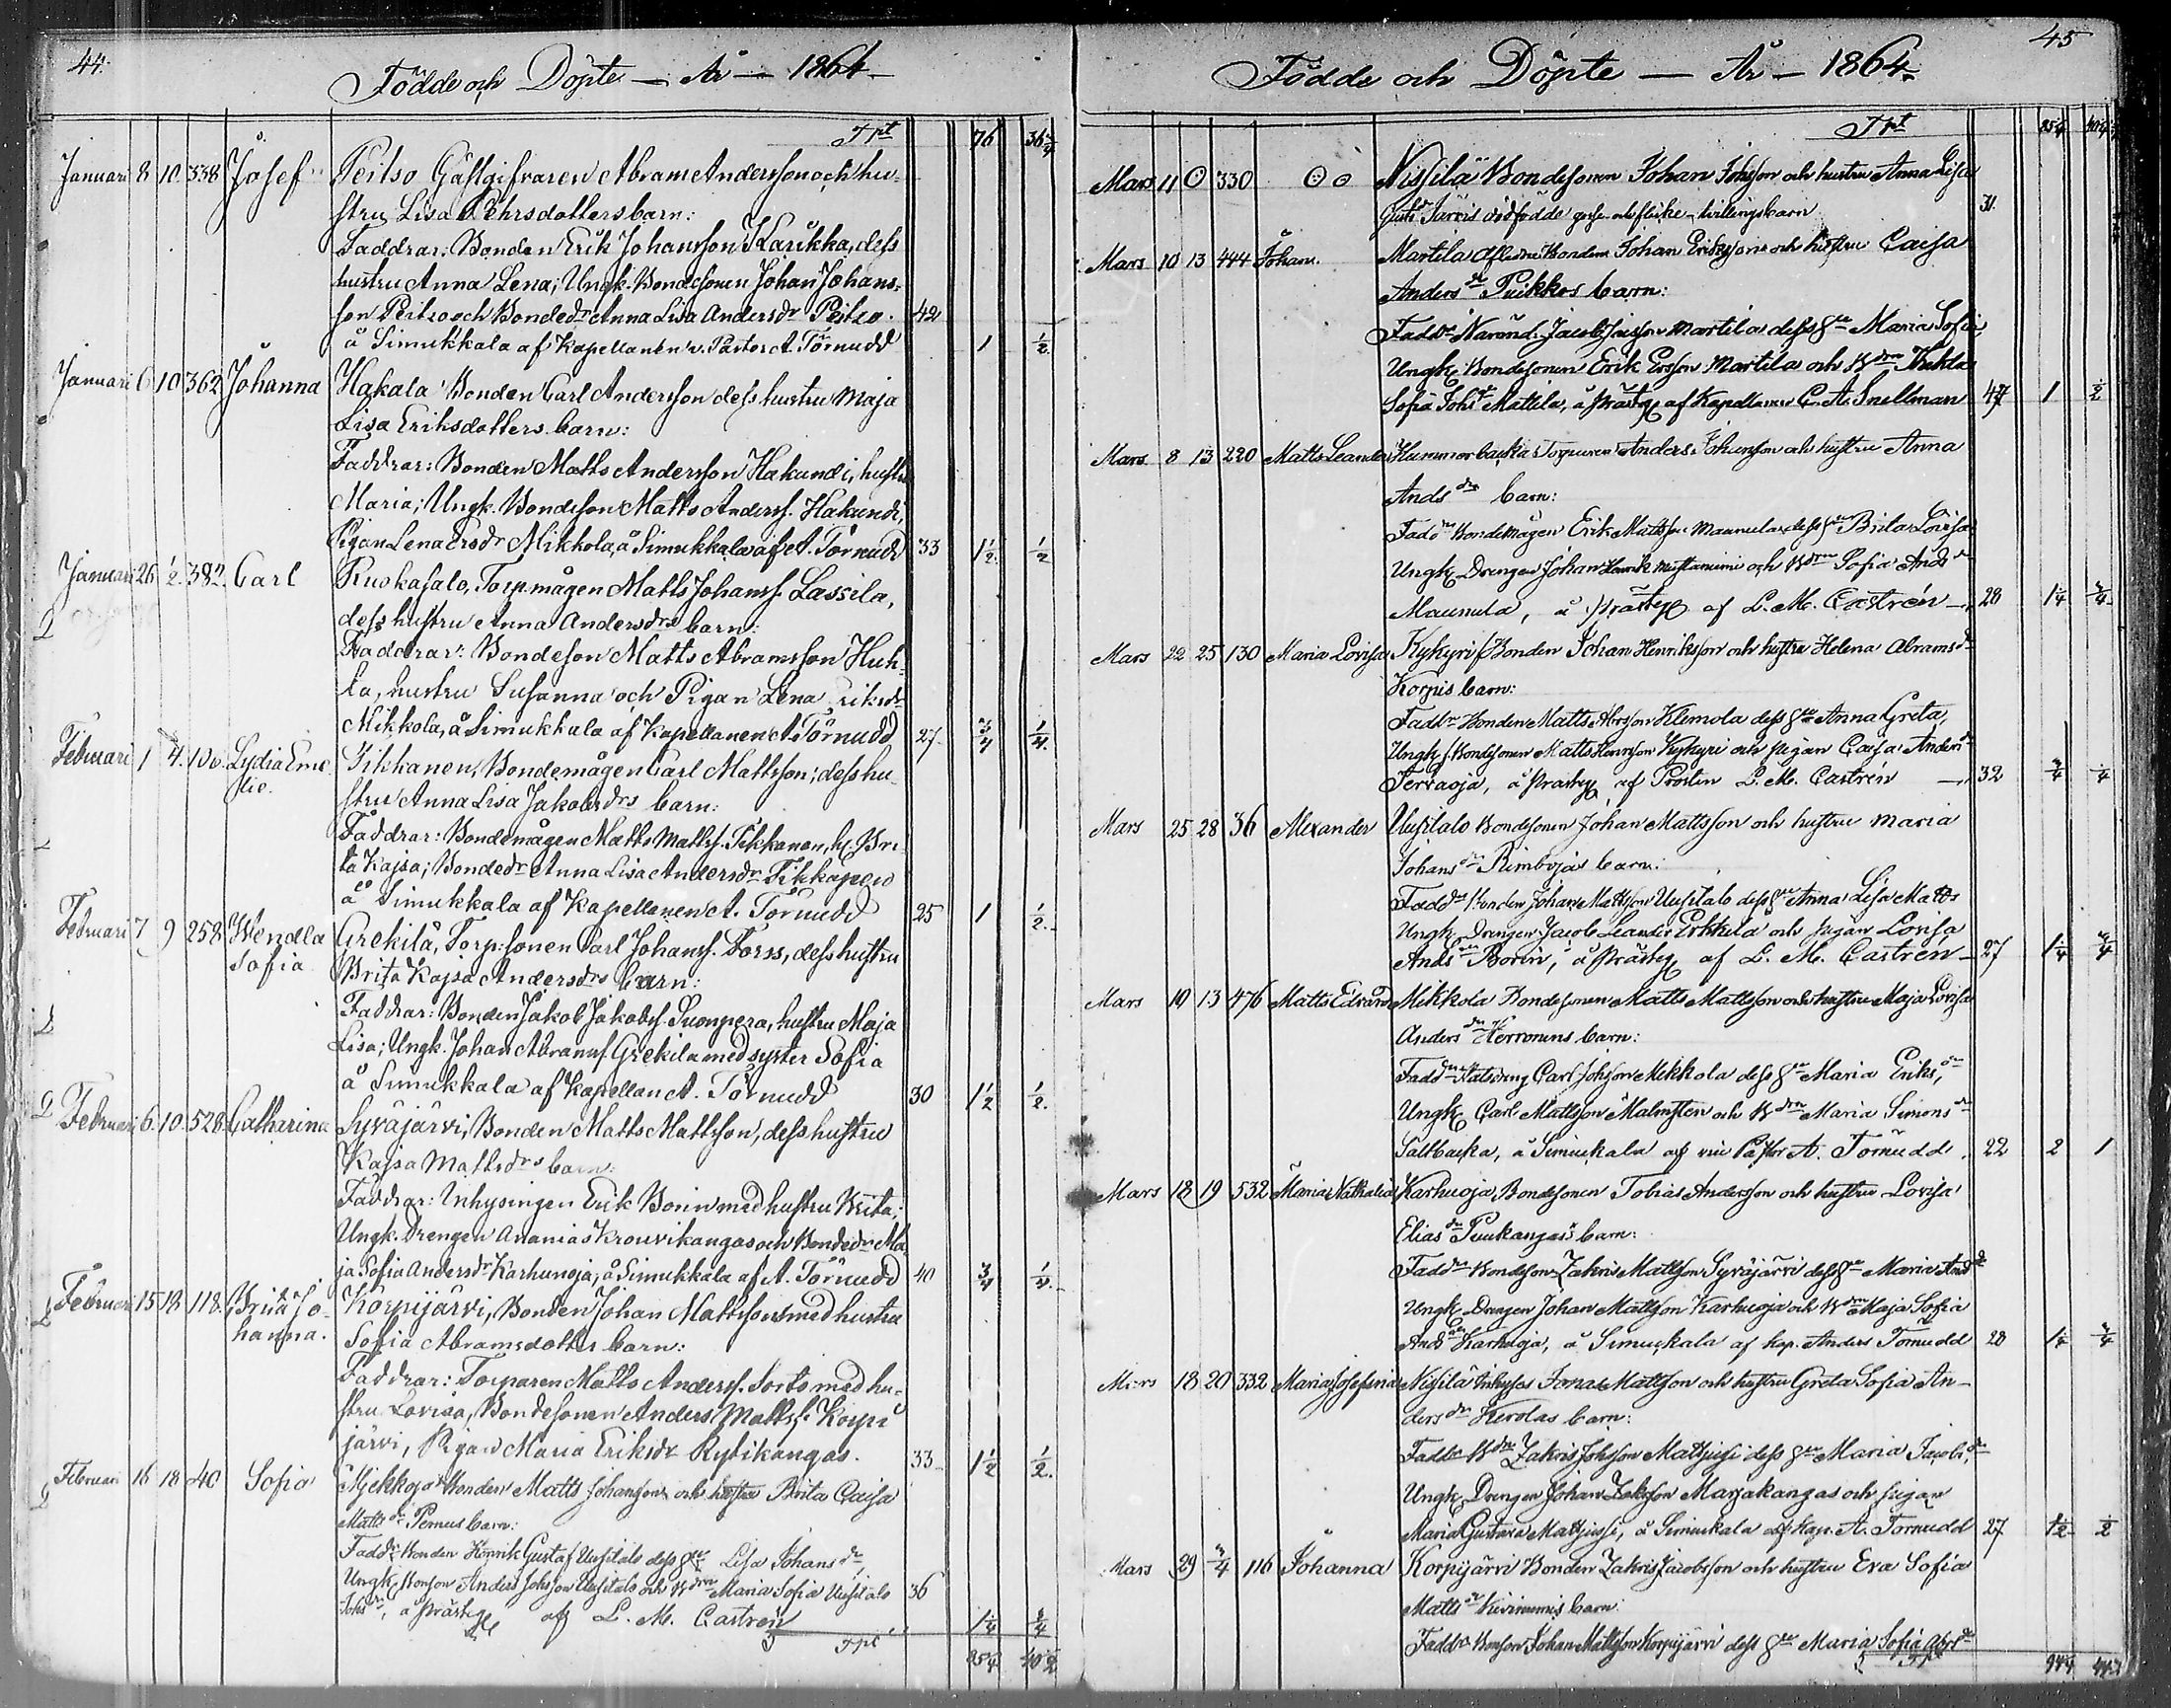 44.
Födde och Döpte — År — 1864
Tpt 76 36 3/4
Januari 8 10 338 Josef Peitso Gästgifvaren Abram Andersson och hu-
stru Lisa Pehrsdotters barn:
Faddrar: Bonden Erik Johansson Karikka, dess
hustru Anna Lena; Ungk. Bondesonen Johan Johans-
son Peitso och Bondedr Anna Lisa Andersdr Peitso. 42
å Simukkala af Kapellanen v. Pastor A. Törnudd 1 1/2
Januari 6 10 362 Johanna Hakala Bonden Carl Andersson dess hustru Maja
Lisa Eriksdotters barn:
Faddrar: Bonden Matts Andersson Hakundi, hustru
Maria; Ungk. Bondeson Matts Anderss. Hakundi,
Pigan Lena Ersdr Mikkola, å Simukkala af A. Törnudd 33 1 1/2 1/2
Januari 26 1/2 382 Carl Ruokasalo, Torp.mågen Matts Johanss. Lassila,
dess hustru Anna Andersdrs barn:
Faddrar: Bondeson Matts Abramsson Huh-
ta, hustru Susanna och Pigan Lena Eriksdr
Mikkola, å Simukkala af Kapellanen A. Törnudd 27 3/4 1/4
Februari 1 4 100 Lydia Eme- Tikkanen, Bondemågen Carl Mattsson; dess hu-
lie. stru Anna Lisa Jakobsdrs barn:
Faddrar: Bondemågen Matts Mattss. Tikkanen, h. Bri-
ta Kajsa; Bondedr Anna Lisa Andersdr Tikkanen
å Simukkala af Kapellanen A. Törnudd 25 1 1/2
Februari 7 9 258 Wendla Grekilä, Torp.sonen Carl Johanss. Forss, dess hustru
Sofia Brita Kajsa Andersdrs barn:
Faddrar: Bonden Jakob Jakobss. Suonpera, hustru Maja
Lisa; Ungk. Johan Abramss. Grekila med syster Sofia
å Simukkala af Kapellan A. Törnudd 30 1 1/2 1/2
Februari 6 10 528 Catharina Syväjärvi, Bonden Matts Mattsson, dess hustru
Kajsa Mattsdrs barn:
Faddrar: Inhysingen Erik Bonin med hustru Brita;
Ungk. Drengen Ananias Krouvikangas och Bondedr Ma-
ja Sofia Andersdr Karhunoja, å Simukkala af A. Törnudd 40 3/4 1/4
Februari 15 18 118 Brita Jo- Korpijärvi, Bonden Johan Mattsson med hustru
hanna. Sofia Abramsdotters barn:
Faddrar: Torparen Matts Anderss. Sorto med hu-
stru Lovisa, Bondesonen Anders Mattss. Korpi
järvi, Pigan Maria Eriksdr Rytikangas. 33 1 1/2 1/2
Februari 16 18 40 Sofia Bonden Matts Johansson och hustru Brita Caisa
Matts dr Pernus barn:
Faddr Bonden Henrik Gustaf Uusitalo dess hu Lisa Johans dr,
Ungk. Bonson Anders Johsson Uusitalo och Bdrn Maria Sofia Uusitalo 36
Johs dr, å Prästeg af L. M. Castrén 1 1/4 3/4
Tpt 85 1/4 40 1/2
45
Födde och Döpte — År — 1864.
Tpt 85 1/4
Mars 11 330 Nissilä Bondesonen Johan Johsson och hustru Anna Lisa
Gusts dr Järvis dödfödde gosse och flicke - tvillingsbarn 31.
Mars 10 13 444 Johan. Martila aflidne Bonden Johan Erikssons och hustru Caisa
Anders dr Puikkos barn:
Martila dess hu Maria Sofia
Ungk. Bondesonen Erik Ersson Martila och Bdrn Thekla
Sofia Johs dr Mattila, å Prästeg af Kapellanen C. A. Snellman 47 1 1/2
Mars 8 13 220 Matts Leander Hummorbacka Torparen Anders Johansson och hustru Anna
Ands drs barn:
Fadd Bondemågen Erik Mattson Maunula dess hu Brita Lovisa
Ungk. Drengen Johan Henrik och Bdrn Sofia Ands dr
Maunula, å Prästeg af L. M. Castrén — 28 1 1/4 3/4
Mars 22 25 130 Maria Lovisa Kykyri Bonden Johan Henriksson och hustru Helena Abrams dr
Korpis barn:
Faddr Bonden Matts Abrsson Klemola dess hu Anna Greta,
Ungk. Bondesonen Matts Henrsson Kykyri och pigan Caisa Anders dr
Tervaoja, å Prästeg af Prosten L. M. Castrén — 32 3/4 1/4
Mars 25 28 36 Alexander Uusitalo Bondesonen Johan Mattsson och hustru Maria
Johans dr Rimbojas barn:
Fadd Bonden Johan Mattsson Uusitalo dess hu Anna Lisa Matts
Ungk. Drengen Jacob Leander Erkkila och pigan Lovisa
Ands dr Borin, å Prästeg af L. M. Castrén — 27 1 1/4 3/4
Mars 10 13 476 Matts Edvard Mikkola Bondesonen Matts Mattsson och hustru Maja Lovisa
Anders dr Herronens barn:
Fadd Carl Johsson Mikkola dess hu Maria Eriks dr,
Ungk. Carl Mattsson Malmsten och Bdrn Maria Simons dr
Saltbacka, å Simukala af vice Pastor A. Törnudd. 22 2 1
Mars 18 19 532 Maria Nathalia Karhuoja Bondesonen Tobias Andersson och hustru Lovisa
Elias dr Puukangas's barn:
Fadd Bondeson Zakris Mattsson Syväjärvi dess hu Maria Ands dr
Ungk. Drengen Johan Mattsson Karhuoja och Bdrn Maja Sofia
Ands dr Karhuoja, å Simukala af kap. Anders Törnudd 28 1 1/4 3/4
Mars 18 20 332 Maria Josefina Nissilä Inhyses Jonas Mattsson och hustru Greta Sofia An-
ders dr Kerolas barn:
Faddr Zakris Johsson Mattjussi dess hu Maria Jacobs dr,
Ungk. Drengen Johan Zakrsson Marjakangas och pigan
Maria Gustava Mattjussi, å Simukala af Kap. A. Törnudd 27 1 1/2 1/2
Mars 29 3/4 116 Johanna Korpijärvi Bonden Zakris Jacobsson och hustru Eva Sofia
Matts dr Kiviniemis barn:
Faddr Bonson Johan Mattsson Korpijärvi dess hu Maria Sofia Abrs dr
Tpt